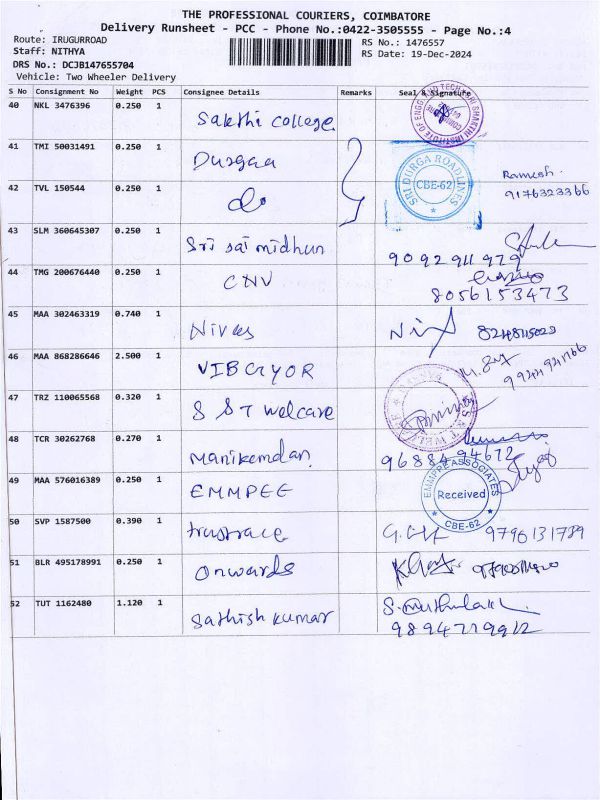 THE PROFESSIONAL COURIERS, COIMBATORE
Delivery Runsheet - PCC - Phone No.:0422-3505555 - Page No.:4
Route: IRUGURROAD
Staff: NITHYA
DRS No.: DCJB147655704
Vehicle: Two Wheeler Delivery
1476557
RS No.: 1476557
RS Date: 19-Dec-2024
S No Consignment No Weight PCS Consignee Details Remarks Seal & Signature
40 NKL 3476396 0.250 1 Sakthi college
41 TMI 50031491 0.250 1 Durgaa
SRI DURGA ROADLINES
CBE-62
Ramesh.
9176323366
42 TVL 150544 0.250 1 do
43 SLM 360645307 0.250 1 Sri sai midhun
9092911979
44 TMG 200676440 0.250 1 CNV
8056153473
45 MAA 302463319 0.740 1 Nivas
46 MAA 868286646 2.500 1 VIBGYOR
47 TRZ 110065568 0.320 1 S S T welcare
48 TCR 30262768 0.270 1 Manikandan
9688494672
49 MAA 576016389 0.250 1 EMMPEE
EMMPRE ASSOCIATES
Received
CBE-62
50 SVP 1587500 0.390 1 trustrace
9796131789
51 BLR 495178991 0.250 1 Onwards
52 TUT 1162480 1.120 1 Sathish kumar
9894719912